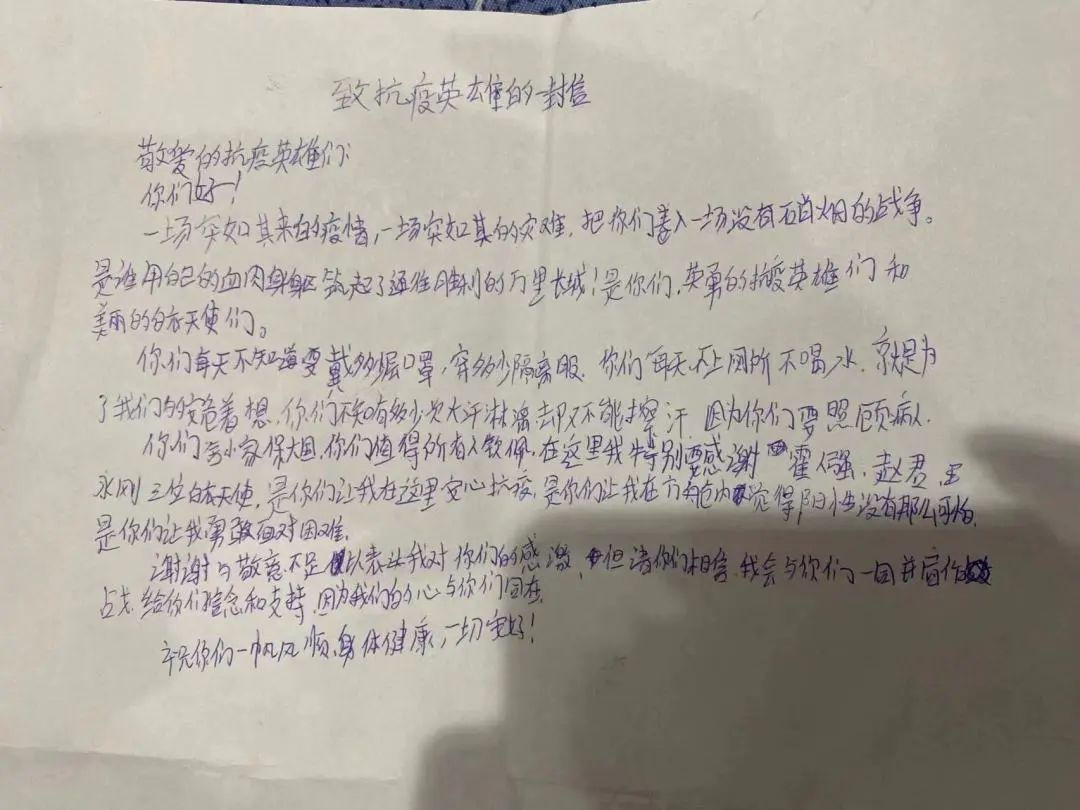 致抗疫英雄的一封信
敬爱的抗疫英雄们:
你们好!
一场突如其来的疫情,一场突如其的灾难,把你们卷入一场没有硝烟的战争。
是谁用自己的血肉身躯筑起了通往胜利的万里长城!是你们,英勇的抗疫英雄们和
美丽的白衣天使们。
你们每天不知道要戴多少层口罩,穿多少隔离服,你们每天不上厕所不喝水,就是为
了我们的安危着想,你们不知有多少次大汗淋漓却又不能擦汗,因为你们要照顾病人.
你们舍小家保大国,你们值得所有人钦佩,在这里我特别要感谢霍 强,赵君,王
永刚三位白衣天使,是你们让我在这里安心抗疫,是你们让我在方舱内觉得阳性没有那么可怕,
是你们让我勇敢面对困难.
谢谢与敬意不足以表达我对你们的感激,但请你们相信,我会与你们一同并肩作
战,给你们信念和支持,因为我们的心与你们同在.
祝你们一帆风顺,身体健康,一切安好!